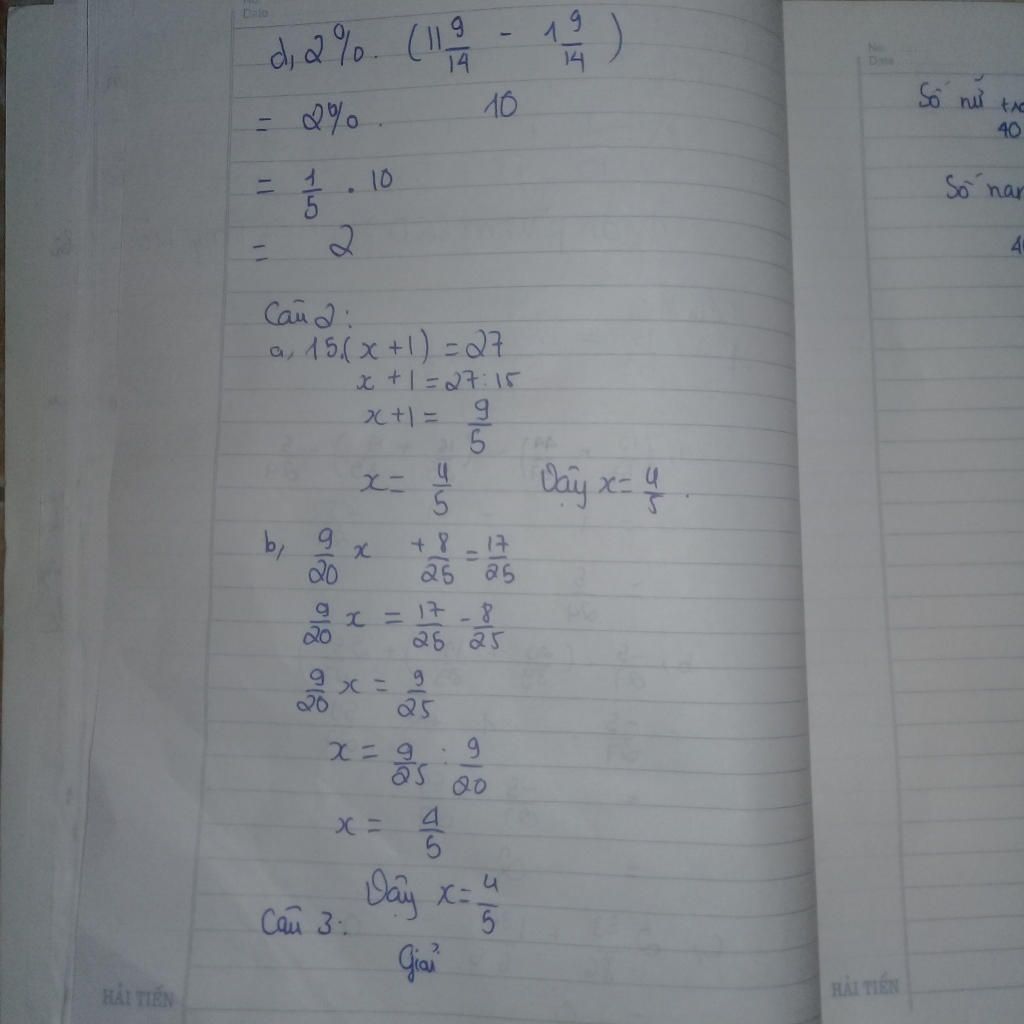 No.
Date
d, 2%. (11 9/14 - 1 9/14)
= 2%. 10
= 1/5 . 10
= 2
Câu 2:
a, 15.(x+1) = 27
x+1 = 27:15
x+1 = 9/5
x = 4/5 Vậy x = 4/5.
b, 9/20 x + 8/25 = 17/25
9/20 x = 17/25 - 8/25
9/20 x = 9/25
x = 9/25 : 9/20
x = 4/5
Vậy x = 4/5
Câu 3:
Giải
HẢI TIẾN
No.
Date
Số nữ
40
Số nam
HẢI TIẾN